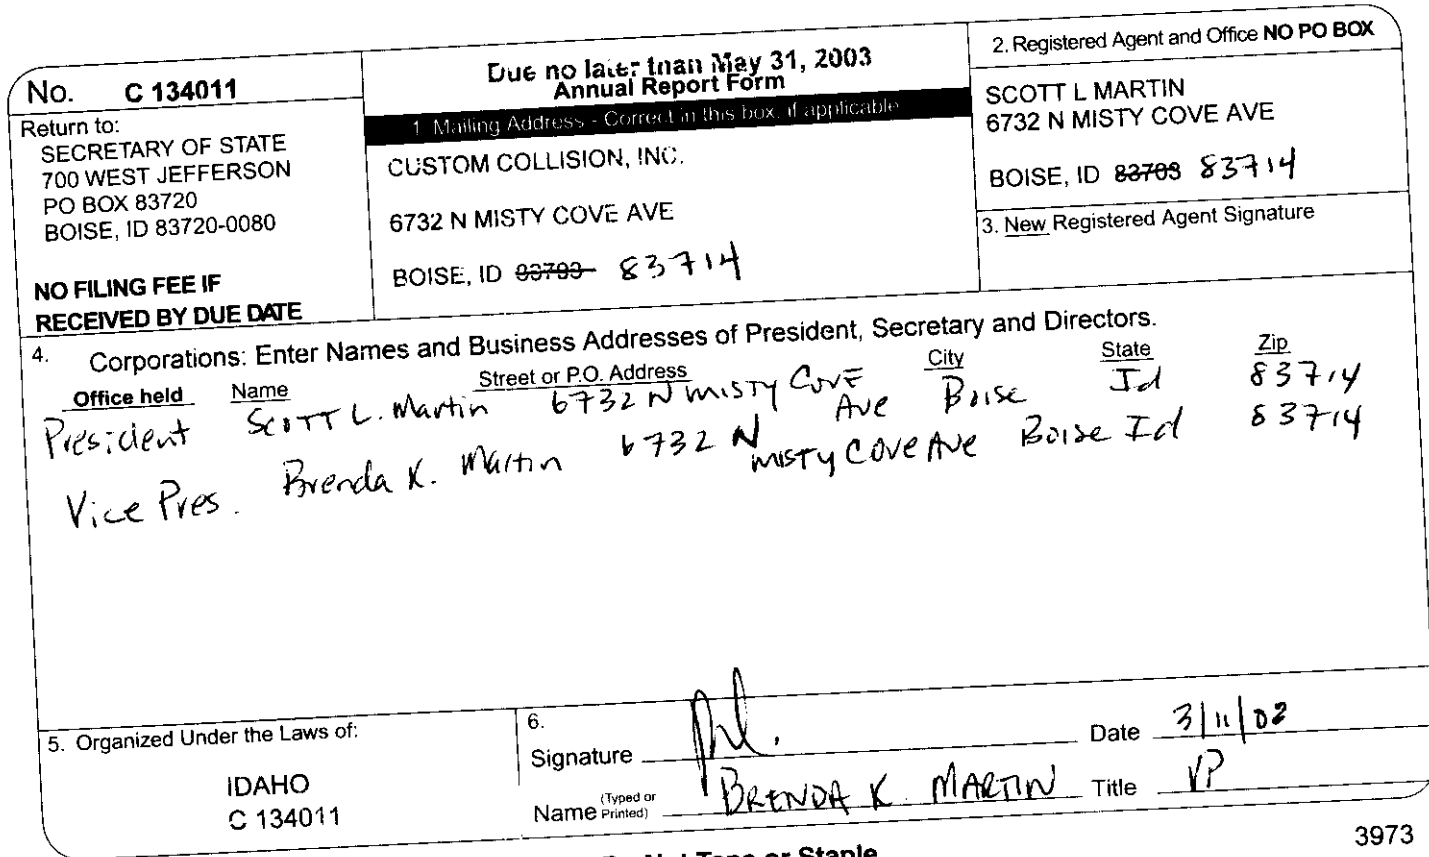 No. C 134011
Return to:
SECRETARY OF STATE
700 WEST JEFFERSON
PO BOX 83720
BOISE, ID 83720-0080
NO FILING FEE IF
RECEIVED BY DUE DATE
Due no later than May 31, 2003
Annual Report Form
1. Mailing Address - Correct in this box, if applicable
CUSTOM COLLISION, INC.
6732 N MISTY COVE AVE
BOISE, ID 83703 83714
2. Registered Agent and Office NO PO BOX
SCOTT L MARTIN
6732 N MISTY COVE AVE
BOISE, ID 83703 83714
3. New Registered Agent Signature
4. Corporations: Enter Names and Business Addresses of President, Secretary and Directors.
Office held Name Street or P.O. Address City State Zip
President Scott L. Martin 6732 N Misty Cove Ave Boise Id 83714
Vice Pres. Brenda K. Martin 6732 N Misty Cove Ave Boise Id 83714
5. Organized Under the Laws of:
IDAHO
C 134011
6.
Signature Date 3/11/02
Name (Typed or Printed) BRENDA K. MARTIN Title VP
3973
Tape or Staple